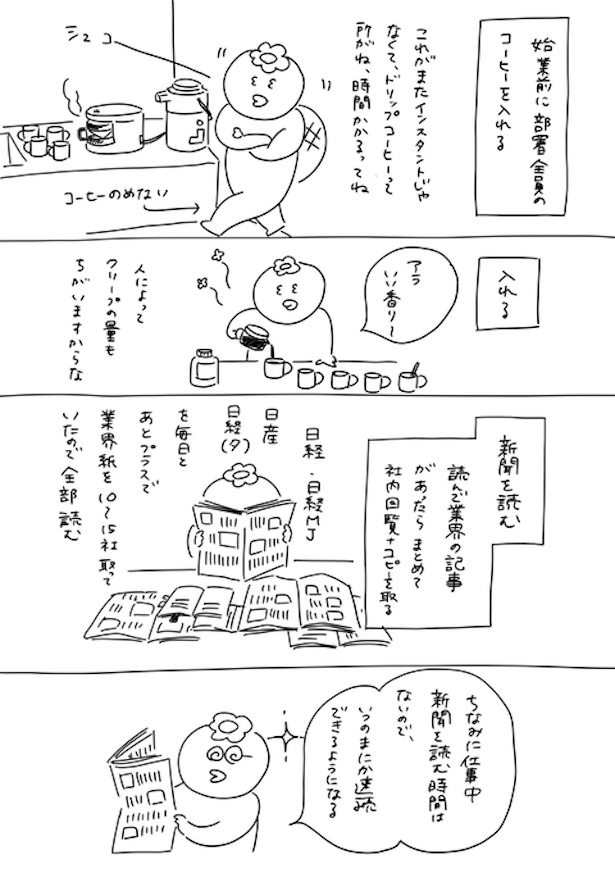 始業前に部署全員の
コーヒーを入れる
これがまたインスタントじゃ
なくて、ドリップコーヒーって
所がね、時間かかるってね
シュコ
コーヒーのめない
入れる
アラ
いい香り〜
人によって
クリープの量も
ちがいますからな
新聞を読む
読んで業界の記事
があったらまとめて
社内回覧+コピーを取る
日経・日経MJ
日産
日経(夕)
を毎日と
あとプラスで
業界紙を10〜15社取って
いたので全部読む
ちなみに仕事中
新聞を読む時間は
ないので、
いつのまにか速読
できるようになる